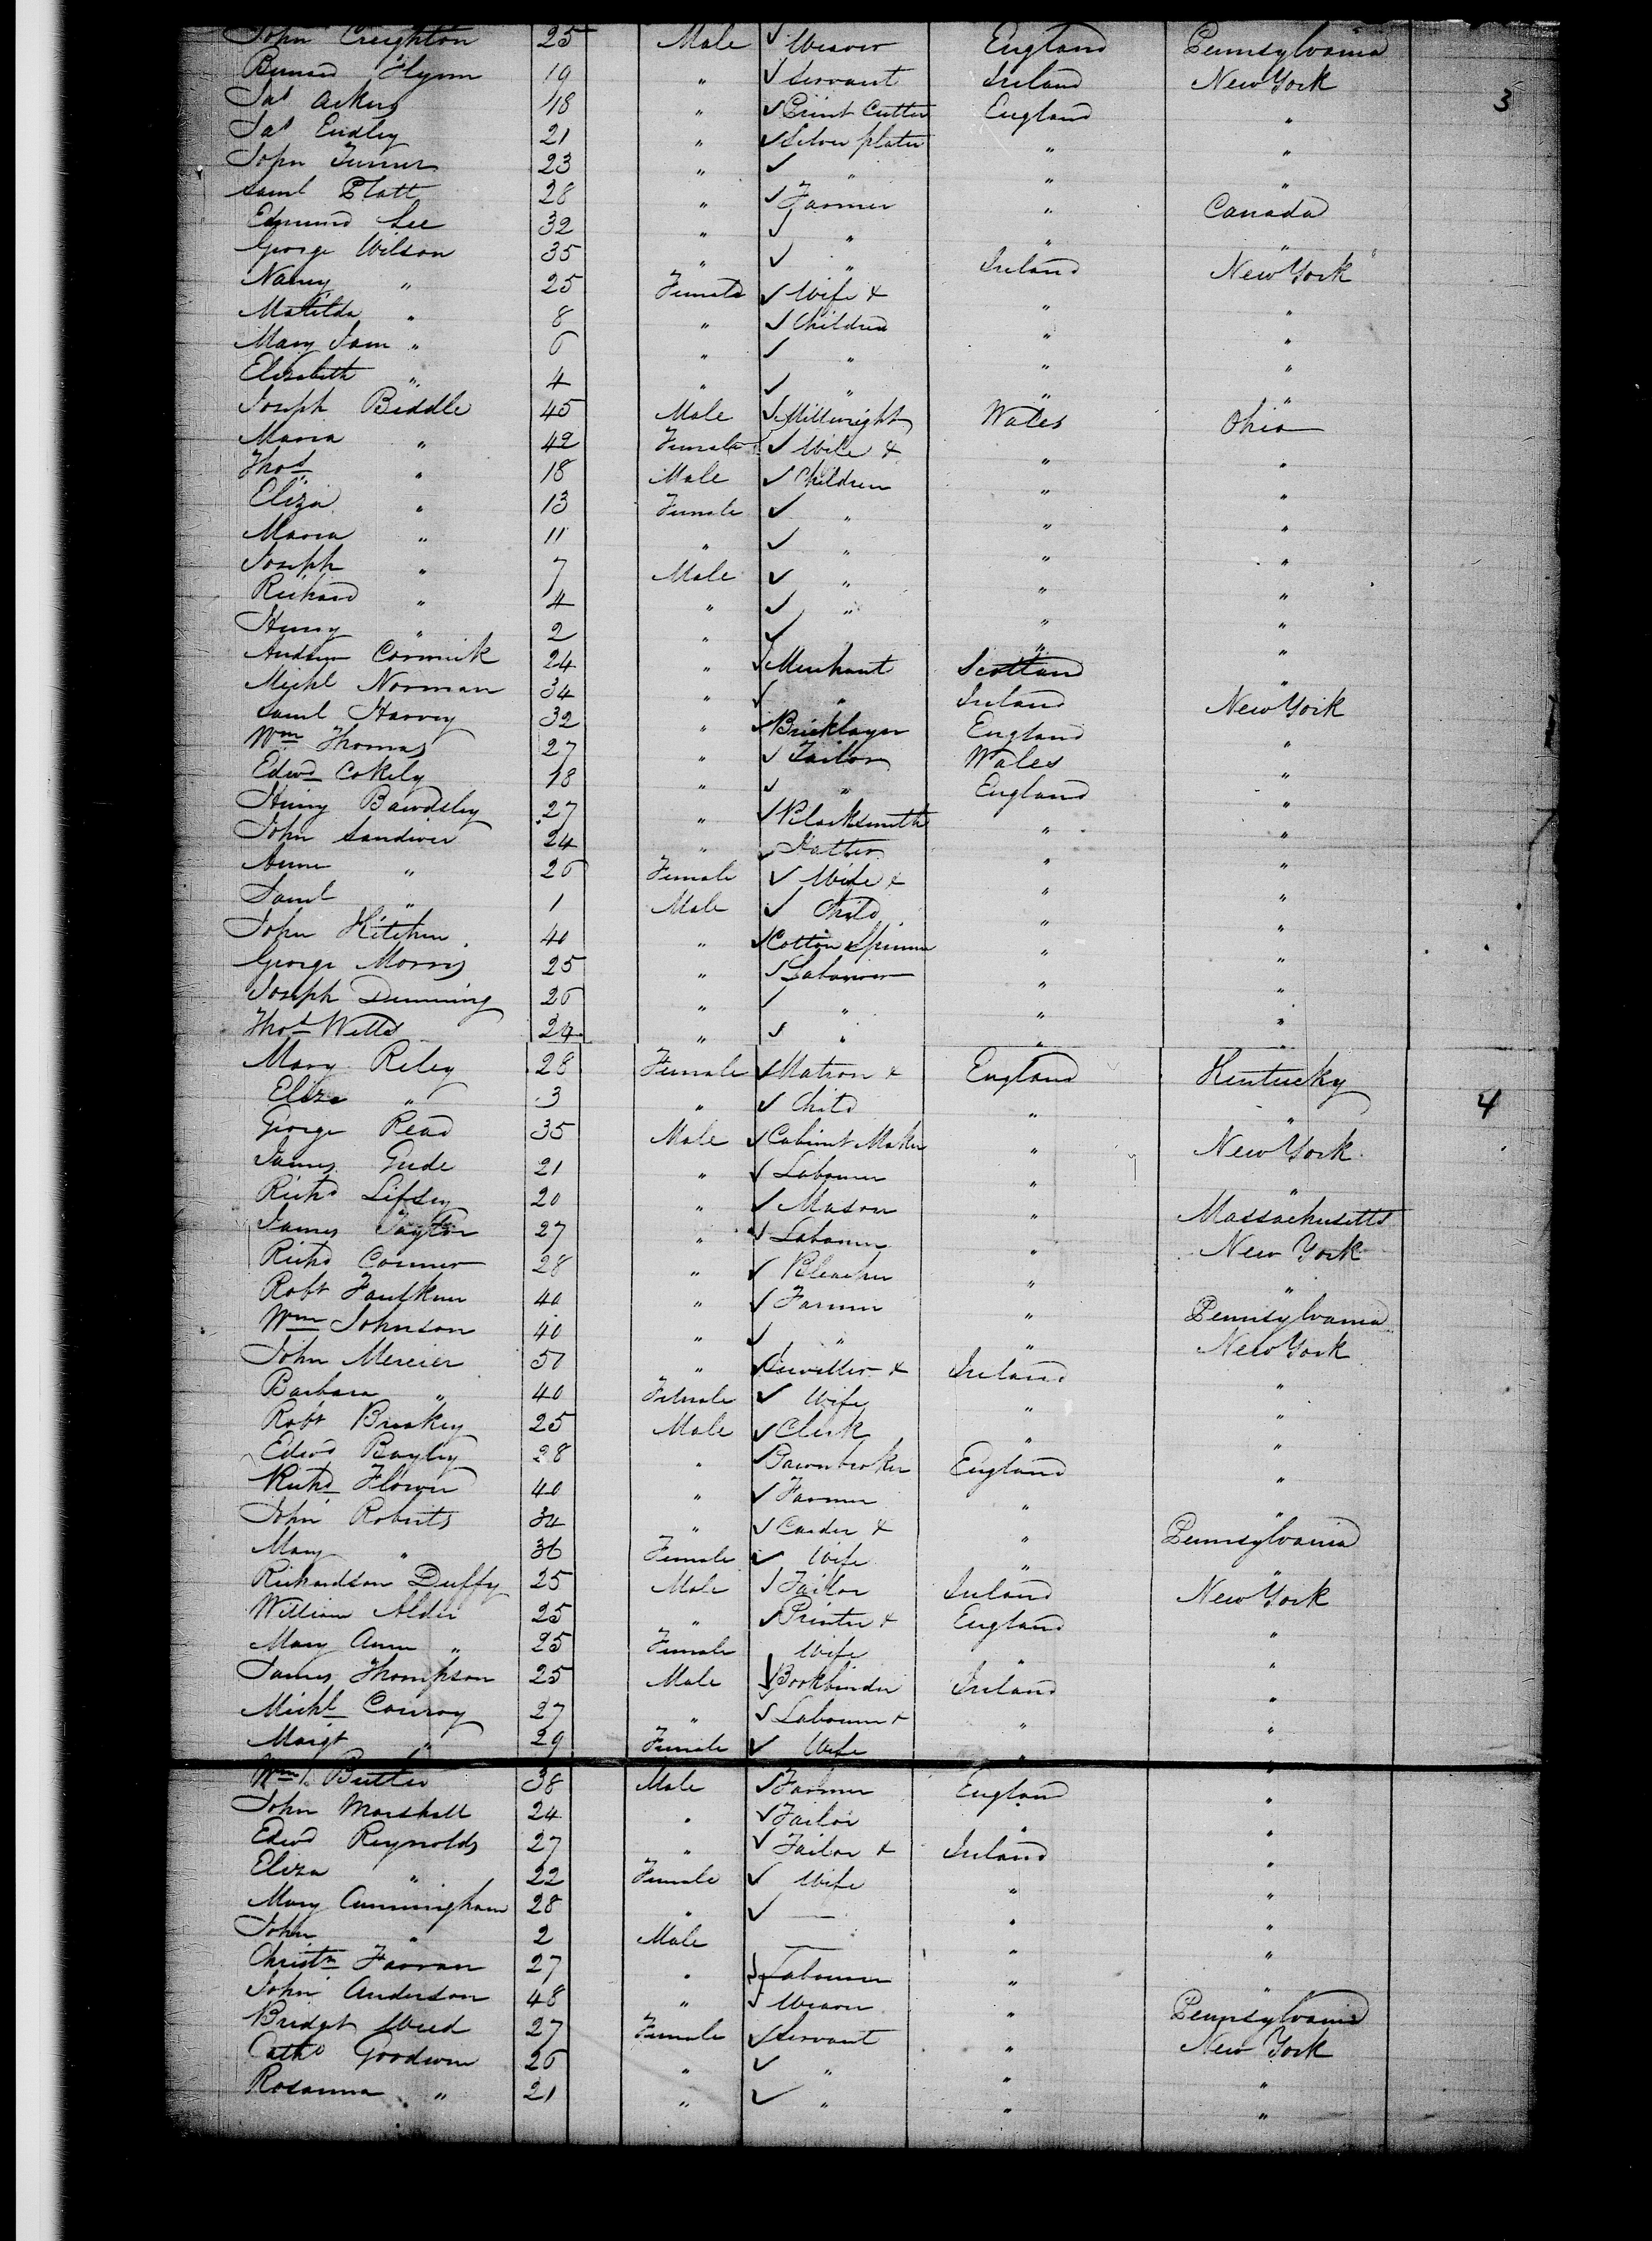 John Creighton 25 Male ✓ Weaver England Pennsylvania
Bernard Flynn 19 " ✓ Servant Ireland New York 3
Jas Askers 18 " ✓ Print Cutter England "
Jas Endley 21 " ✓ Silver plater " "
John Turner 23 " ✓ " " "
Saml Platt 28 " ✓ Farmer " Canada
Edmund Lee 32 " ✓ " " "
George Wilson 35 " ✓ " Ireland New York
Nancy " 25 Female ✓ Wife & " "
Matilda " 8 " ✓ Children " "
Mary Jane " 6 " ✓ " " "
Elizabeth " 4 " ✓ " " "
Joseph Beddle 45 Male ✓ Millwright Wales Ohio
Maria " 42 Female ✓ Wife & " "
Thos " 18 Male ✓ Children " "
Eliza " 13 Female ✓ " " "
Maria " 11 " ✓ " " "
Joseph " 7 Male ✓ " " "
Richard " 4 " ✓ " " "
Henry " 2 " ✓ " " "
Andrew Cormick 24 " ✓ Merchant Scotland "
Michl Norman 34 " ✓ " Ireland New York
Saml Harvey 32 " ✓ Bricklayer England "
Wm Thomas 27 " ✓ Tailor Wales "
Edwd Cokely 18 " ✓ " England "
Henry Bawdsley 27 " ✓ Blacksmith " "
John Sandiver 24 " ✓ Hatter " "
Anne " 26 Female ✓ Wife & " "
Saml " 1 Male ✓ Child " "
John Kitchen 40 " ✓ Cotton Spinner " "
George Morris 25 " ✓ Labourer " "
Joseph Dunning 26 " ✓ " " "
Thos Wells 24 " ✓ " " "
Mary Riley 28 Female ✓ Matron & England Kentucky
Eliza " 3 " ✓ Child " " 4
George Read 35 Male ✓ Cabinet Maker " New York
James Gude 21 " ✓ Labourer " "
Richd Lifsey 20 " ✓ Mason " Massachusetts
James Taylor 27 " ✓ Labourer " New York
Richd Conner 28 " ✓ Bleacher " "
Robt Faulkner 40 " ✓ Farmer " Pennsylvania
Wm Johnson 40 " ✓ " " New York
John Mercier 50 " ✓ Jeweller & Ireland "
Barbara " 40 Female ✓ Wife " "
Robt Breakey 25 Male ✓ Clerk " "
Edwd Bayley 28 " Pawnbroker England "
Richd Flower 40 " ✓ Farmer " "
John Roberts 34 " ✓ Carder & " Pennsylvania
Mary " 36 Female ✓ Wife " "
Richardson Duffy 25 Male ✓ Tailor Ireland New York
William Alder 25 " ✓ Printer & England "
Mary Anne " 25 Female Wife " "
James Thompson 25 Male ✓ Bookbinder Ireland "
Michl Conroy 27 " ✓ Labourer & " "
Margt " 29 Female ✓ Wife " "
Wm Butler 38 Male ✓ Farmer England "
John Marshall 24 " ✓ Tailor " "
Edwd Reynolds 27 " ✓ Tailor & Ireland "
Eliza " 22 Female ✓ Wife " "
Mary Cunningham 28 " ✓ — " "
John " 2 Male — " "
Christr Farran 27 " ✓ Labourer " "
John Anderson 48 " ✓ Weaver " Pennsylvania
Bridget Weed 27 Female ✓ Servant " New York
Cathe Goodwin 26 " ✓ " " "
Rosanna " 21 " ✓ " " "